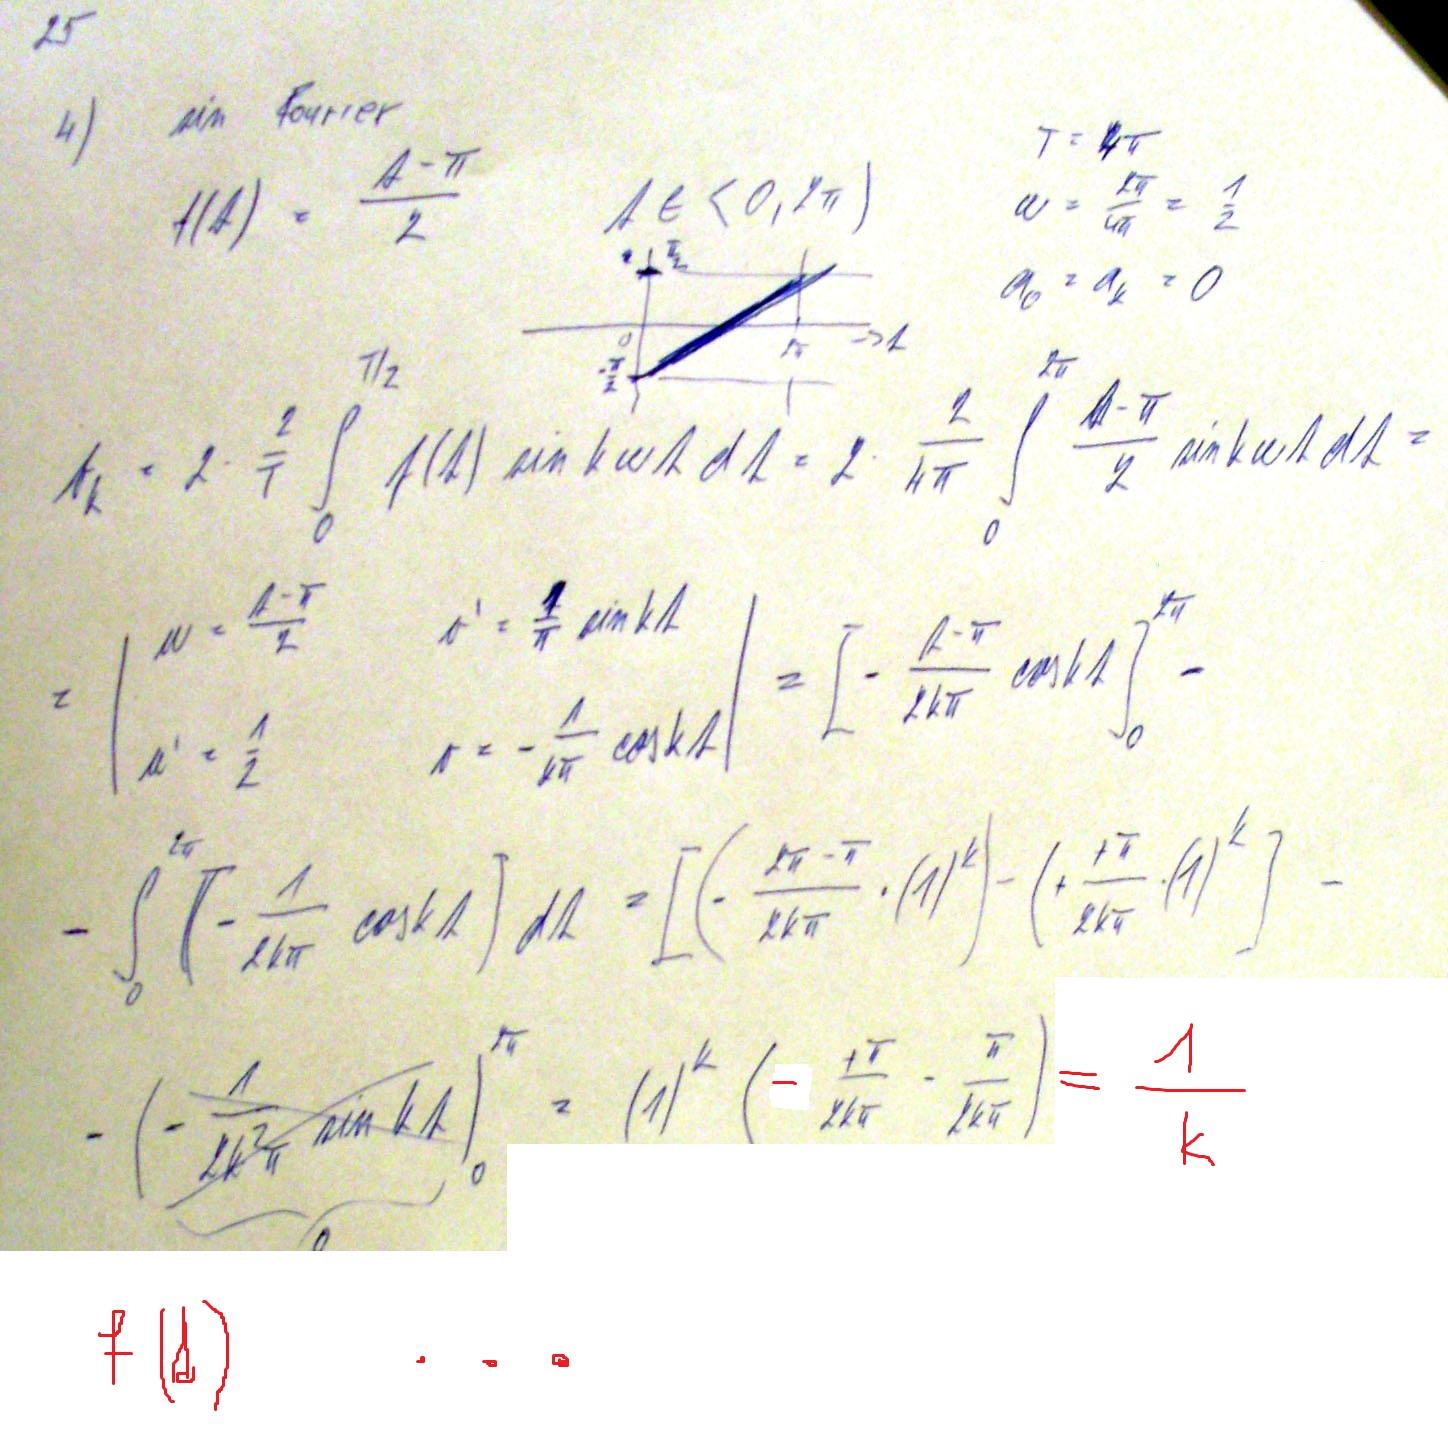 25
4) sin Fourier
f(t) = (t-π)/2    t ∈ <0, 2π)
T = 4π
ω = 2π/4π = 1/2
a₀ = aₖ = 0
π/2
0    2π    →t
-π/2
bₖ = 2 · 2/T ∫₀^(T/2) f(t) sin kωt dt = 2 · 2/4π ∫₀^(2π) (t-π)/2 sin kωt dt =
= | u = (t-π)/2    v' = 1/π sin kt
u' = 1/2    v = - 1/kπ cos kt | = [- (t-π)/2kπ cos kt]₀^(2π) -
- ∫₀^(2π) [- 1/2kπ cos kt] dt = [(- (2π-π)/2kπ · (1)^k) - (+ +π/2kπ · (1)^k] -
- (- 1/2k²π sin kt)₀^(2π) = (1)^k (- +π/2kπ - π/2kπ) = 1/k
0
f(t) . . .